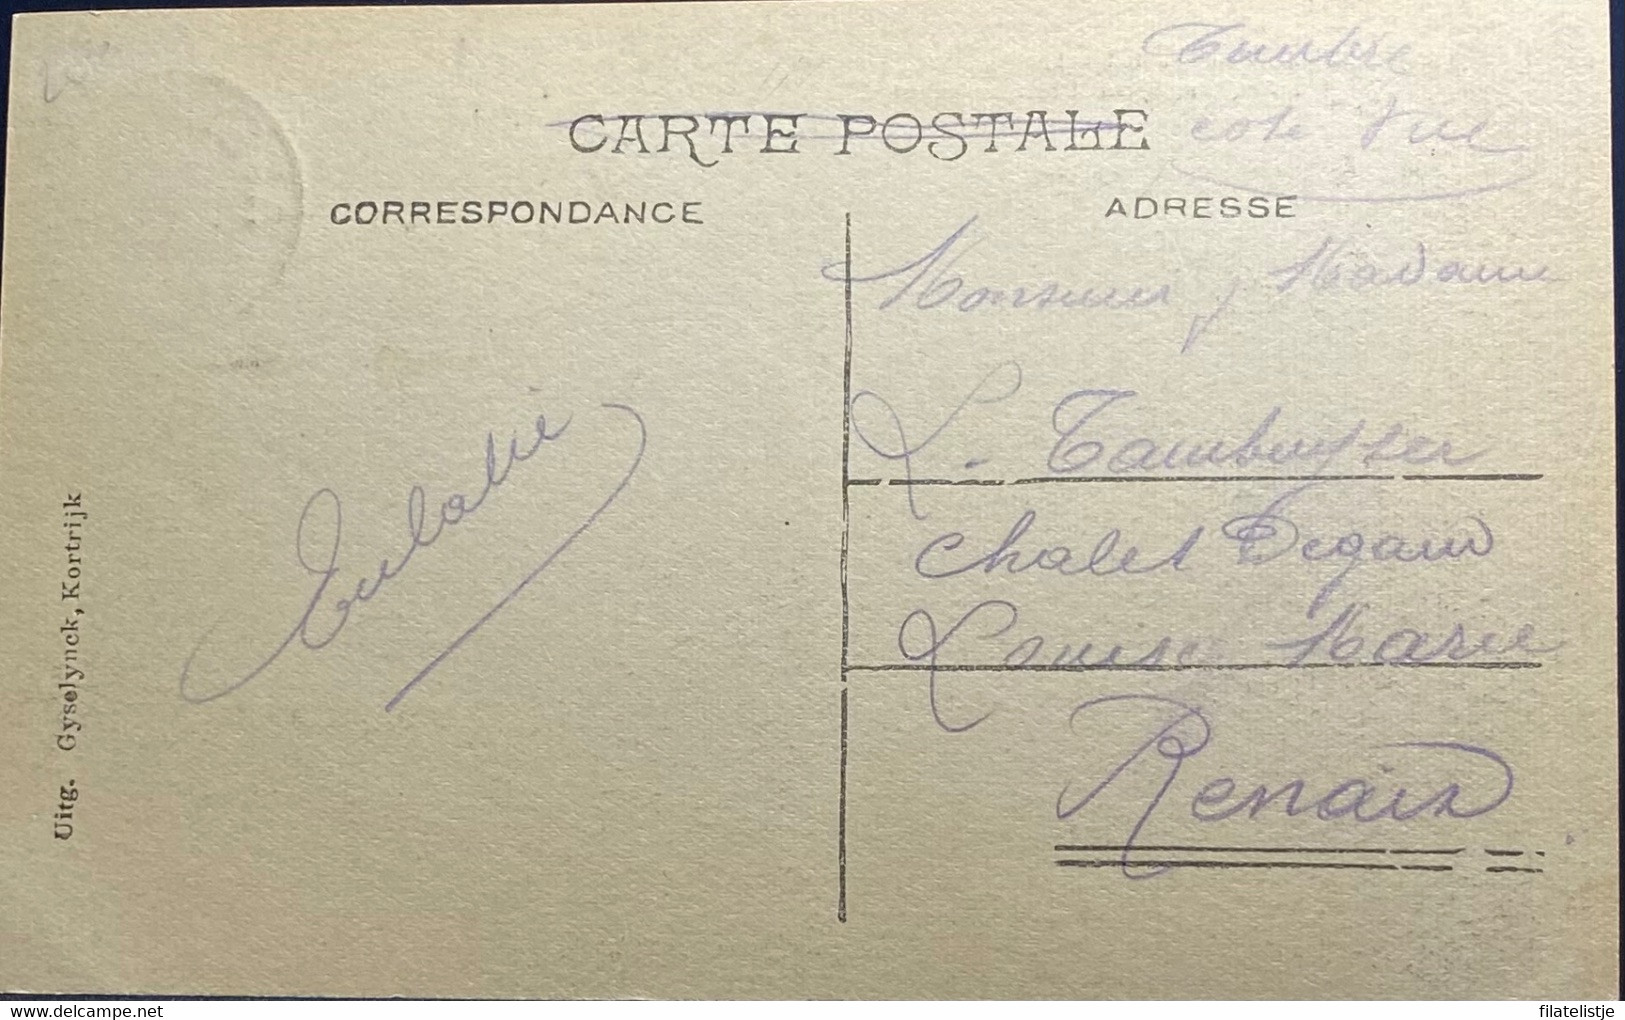 Timbre
côté vue
CARTE POSTALE
CORRESPONDANCE
ADRESSE
Monsieur, Madame
L. Tambuyser
Chalet Degand
Louise Marie
Renaix
Eulalie
Uitg. Gyselynck, Kortrijk
filatelistje